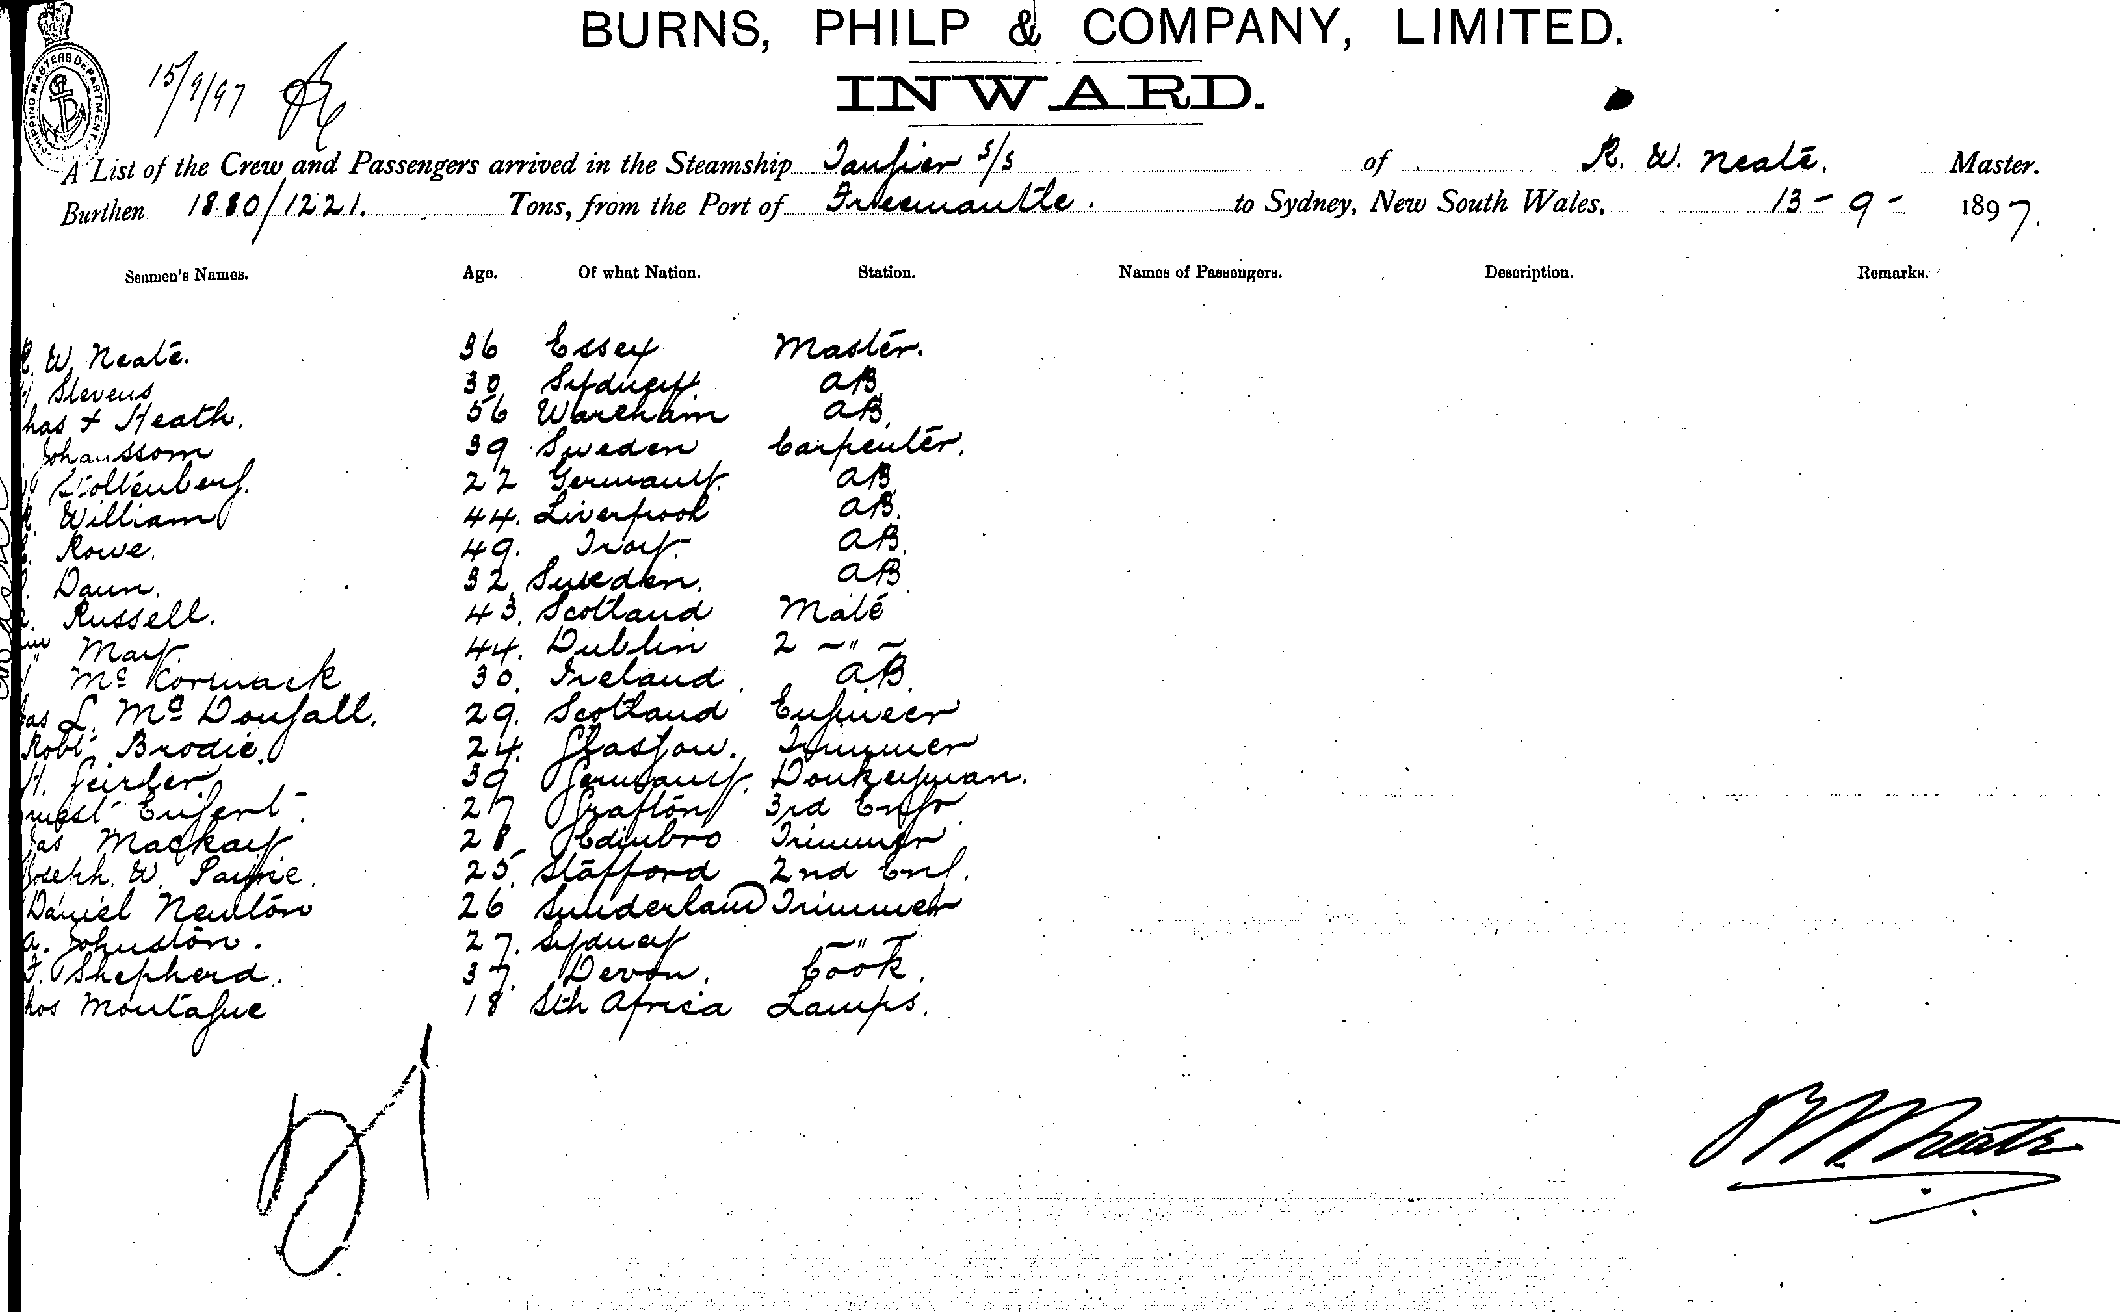 BURNS, PHILP & COMPANY, LIMITED.
INWARD.
SHIPPING MASTERS DEPARTMENT
15/9/97
A List of the Crew and Passengers arrived in the Steamship Taupier s/s of R. W. Neate. Master.
Burthen 1880/1221. Tons, from the Port of Freemantle. to Sydney, New South Wales, 13-9- 1897.
Seamen's Names. Age. Of what Nation. Station. Names of Passengers. Description. Remarks.
R. W. Neate. 36 Essex Master.
Stevens 30 Sydney. AB
has + Heath. 56 Wareham AB.
Johanssom 39 Sweden Carpenter.
Stoltenberg. 22 Germany. AB
William 44. Liverpool AB.
Rowe. 49. Troy. AB.
Daun. 32. Sweden. AB
Russell. 43. Scotland Mate
May. 44. Dublin 2 -"-
Mc Kormack 30. Ireland. AB.
as L. Mc Dougall. 29. Scotland Engineer
Robt Brodie. 24. Glasgow. Trimmer
H. Geirler. 39 Germany. Donkeyman.
rnest Eugert. 27 Grafton 3rd Engr.
Jas Mackay 28 Edinbro Trimmer
Joseph. W. Payne. 25. Stafford 2nd Eng.
Daniel Newton 26 Sunderland Trimmer
A. Johnston. 27. Sydney -"-
F. Shepherd. 37. Devon. Cook.
hos Montague 18 Sth Africa Lamps.
R W Neate